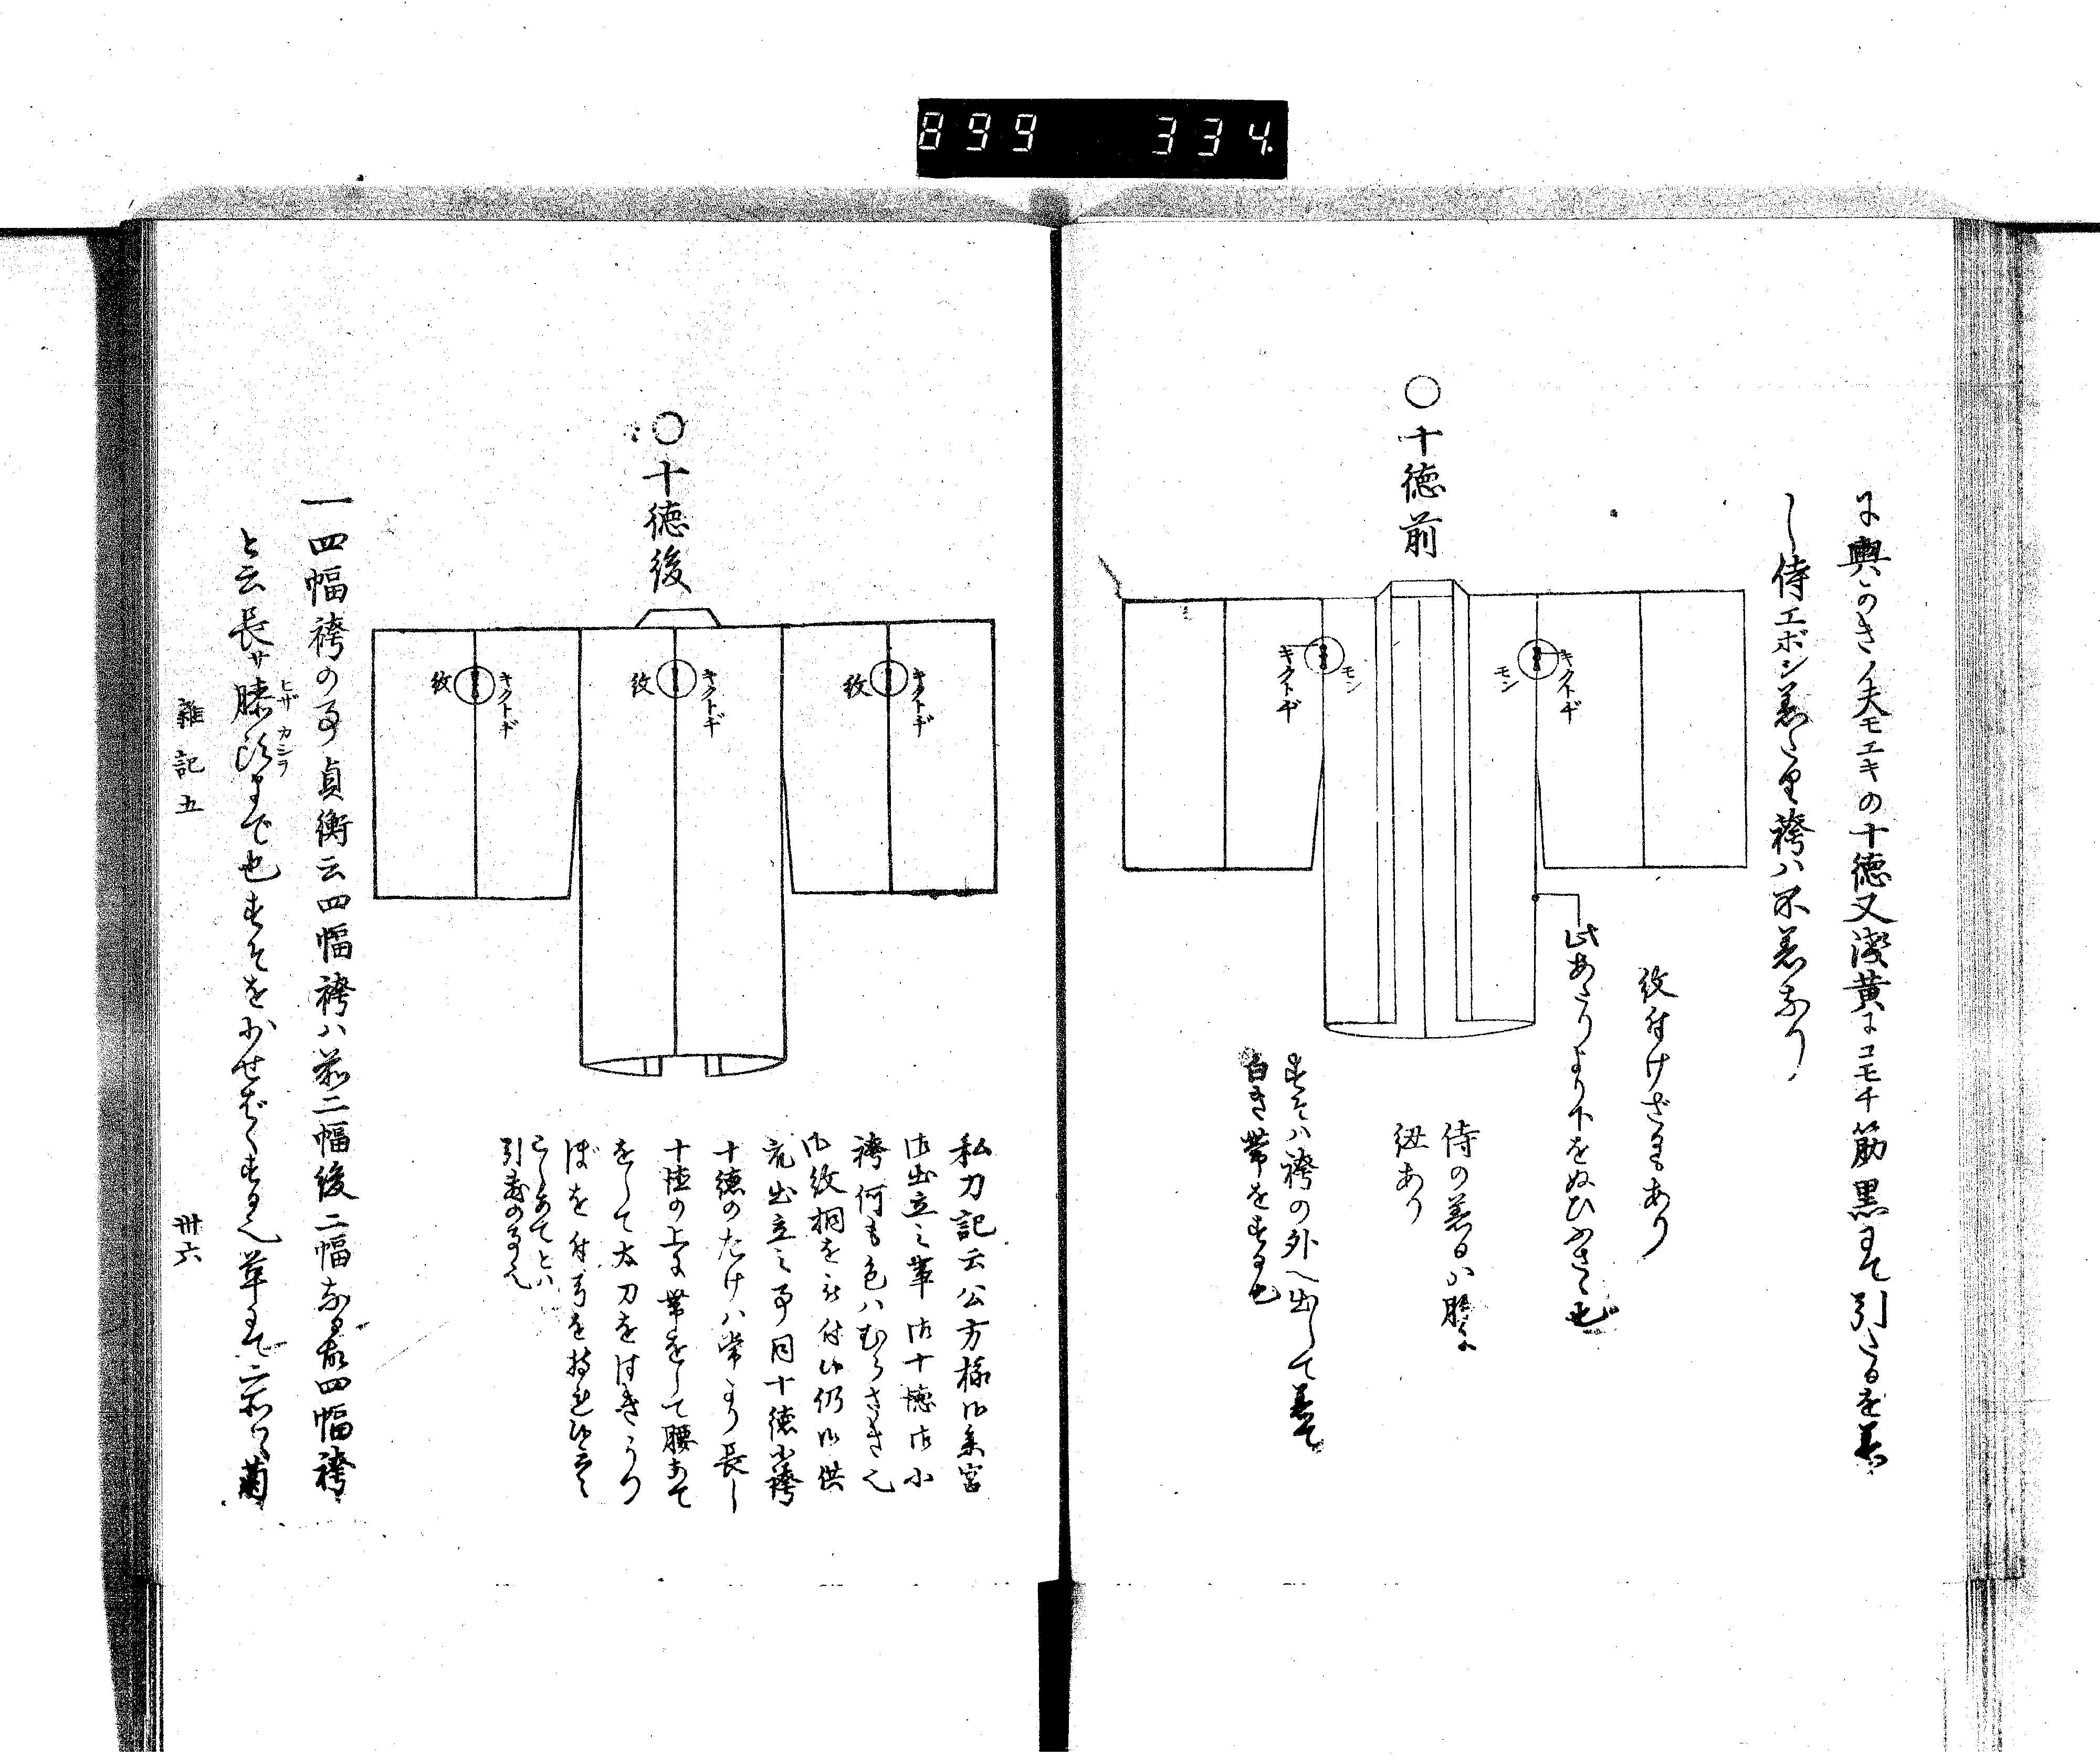 899 334.
に輿かき人夫モエキの十徳又浅黄にコモチ筋黒まて引たるを着
し侍エボシ着たり袴ハ不着なり
○十徳前
キクトヂ
モン
モン
キクトヂ
紋付けざるもあり
此あたりより下をぬひふさく也
侍の着るハ脇に
紐あり
すそハ袴の外へ出して着て
白き帯をする也
○十徳後
キクトヂ
紋
キクトヂ
紋
キクトヂ
紋
私刀記云公方様御参宮
御出立之事御十徳御小
袴何も色ハむらさき也
御紋桐を被付候仍御供
衆出立之事同十徳小袴
十徳のたけハ常より長し
十徳の上に帯をして腰あて
をして太刀をはきうつ
ぼを付弓を持也候云々
こしあてとハ
引敷の事也
一四幅袴の事貞衡云四幅袴ハ前二幅後二幅なる故四幅袴
と云長サ膝頭まで也すそを少せばくする也革まて二所つゝ菊
ヒザカシラ
雑記五
卅六